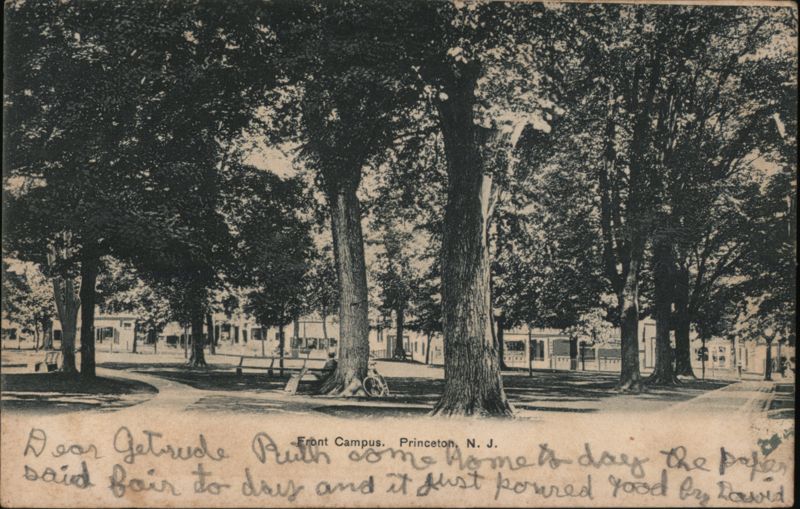 Front Campus. Princeton, N. J.
Dear Getrude Ruth come home to day the paper
said fair to day and it just poured good by David